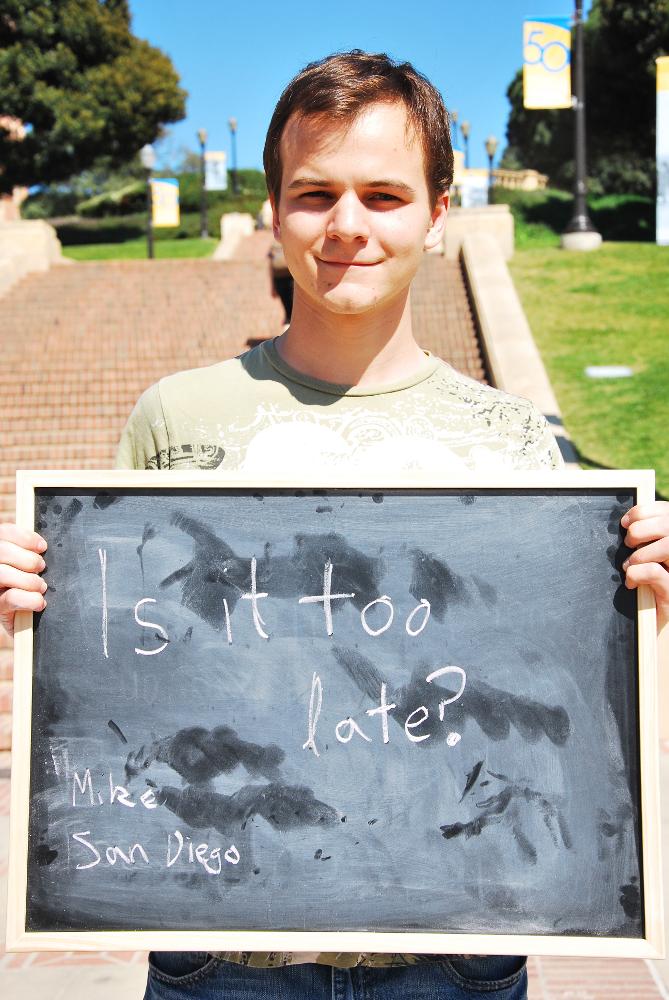 50
Is it too
late?
Mike
San Diego